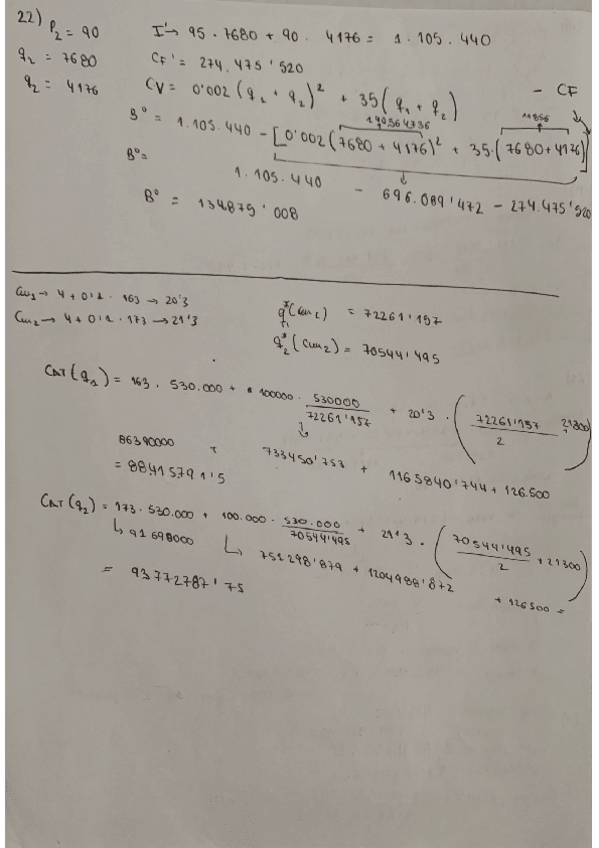 22) P₂ = 90 I'→ 95 · 7680 + 90 · 4176 = 1.105.440
q₁ = 7680 CF' = 274.475'520
q₂ = 4176 CV = 0'002 (q₁ + q₂)² + 35 (q₁ + q₂) - CF
140564736 11856
B° = 1.105.440 - [0'002 (7680 + 4176)² + 35 · (7680 + 4176)]
B° = 1.105.440 - 696.089'472 - 274.475'520
B° = 134875'008
Cm₁ → 4 + 0'1 · 163 → 20'3 q₁*(Cm₁) = 72261'157
Cm₂ → 4 + 0'1 · 173 → 21'3 q₂*(Cm₂) = 70544'495
CAT (q₁) = 163 · 530.000 + 100000 · 530000 / 72261'157 + 20'3 · (72261'157 / 2 + 21300)
86390000 + 733450'753 + 1165840'744 + 126.500
= 8841579 1'5
CAT (q₂) = 173 · 530.000 + 100.000 · 530.000 / 70544'495 + 21'3 · (70544'495 / 2 + 21300)
↳ 91698000 ↳ 751298'879 + 1204988'872 + 126500 =
= 93772787'75